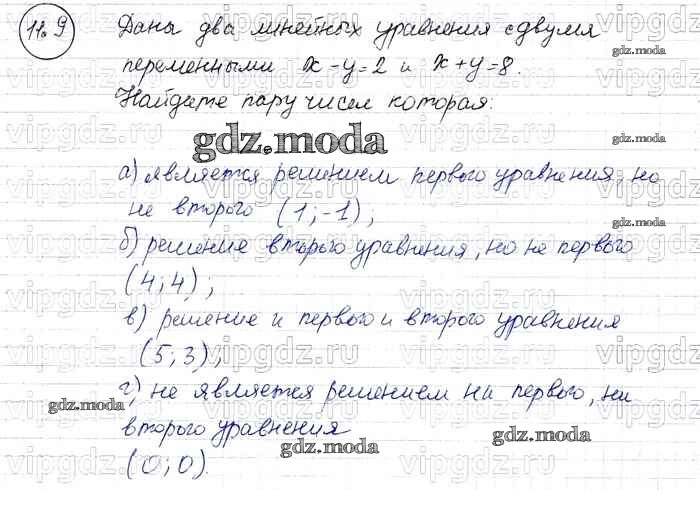 11.9 Даны два линейных уравнения с двумя
переменными x - y = 2 и x + y = 8.
Найдите пару чисел которая:
а) является решением первого уравнения, но
не второго (1; -1);
б) решение второго уравнения, но не первого
(4; 4);
в) решение и первого и второго уравнения
(5; 3);
г) не является решением ни первого, ни
второго уравнения
(0; 0).
gdz.moda
gdz.moda
gdz.moda
gdz.moda
gdz.moda
gdz.moda
gdz.moda
gdz.moda
vipgdz.ru
vipgdz.ru
vipgdz.ru